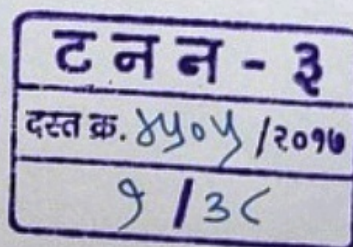 ट न न - ३
दस्त क्र. ४५०५ /२०१७
१ / ३८